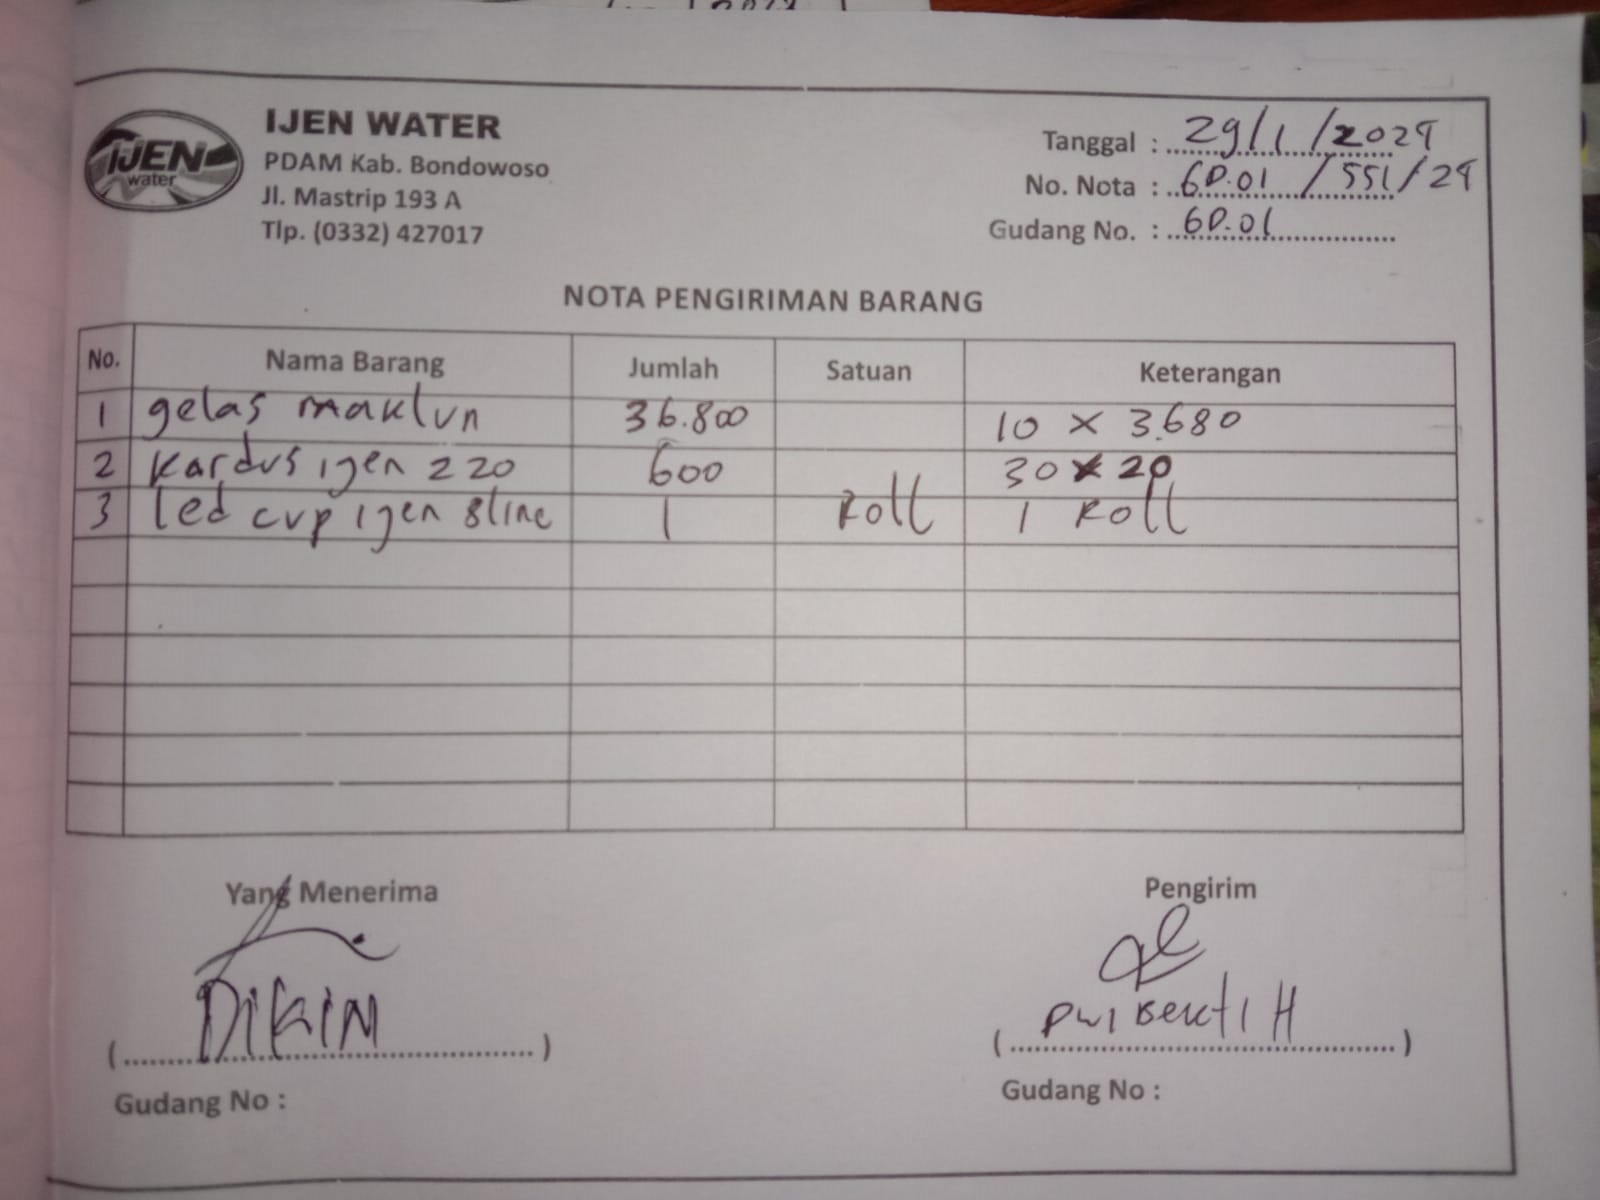 IJEN WATER
PDAM Kab. Bondowoso
Jl. Mastrip 193 A
Tlp. (0332) 427017
IJEN
water
Tanggal : 29/1/2024
No. Nota : GD.01 / 551/24
Gudang No. : GD.01
NOTA PENGIRIMAN BARANG
No. Nama Barang Jumlah Satuan Keterangan
1 gelas maklun 36.800 10 x 3.680
2 kardus ijen 220 600 30 x 20
3 led cup ijen 8line 1 Roll 1 Roll
Yang Menerima
DIKIN
(........................................)
Gudang No :
Pengirim
Dwi Bekti H
(........................................)
Gudang No :